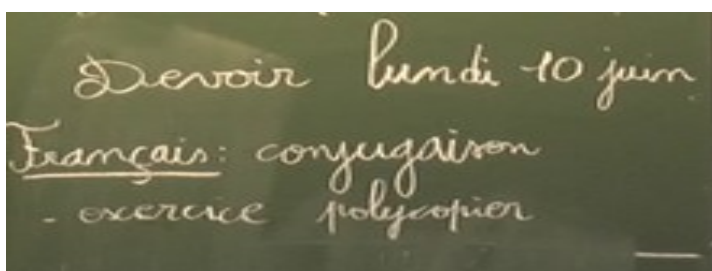 Devoir lundi 10 juin
Français: conjugaison
- exercice polycopier